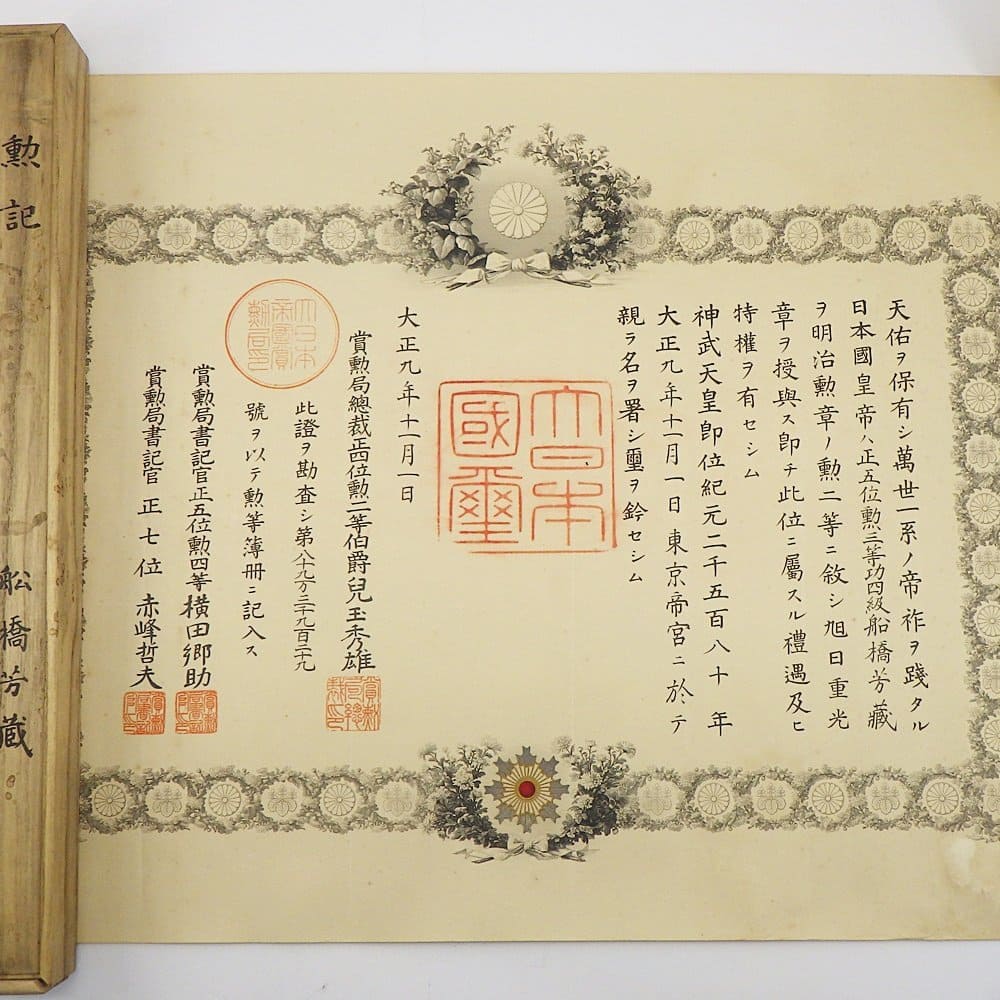 天佑ヲ保有シ萬世一系ノ帝祚ヲ踐タル
日本國皇帝ハ正五位勲三等功四級船橋芳藏
ヲ明治勲章ノ勲二等ニ敘シ旭日重光
章ヲ授與ス即チ此位ニ屬スル禮遇及ヒ
特權ヲ有セシム
神武天皇即位紀元二千五百八十年
大正九年十一月一日東京帝宮ニ於テ
親ラ名ヲ署シ璽ヲ鈐セシム
大日本
國璽
大正九年十一月一日
賞勲局總裁正四位勲二等伯爵兒玉秀雄
此證ヲ勘査シ第八十九万三千九百三十九
號ヲ以テ勲等簿册ニ記入ス
大日本
帝國賞
勲局印
賞勲局書記官正五位勲四等横田郷助
賞勲局書記官正七位赤峰哲夫
勲記
船橋芳藏